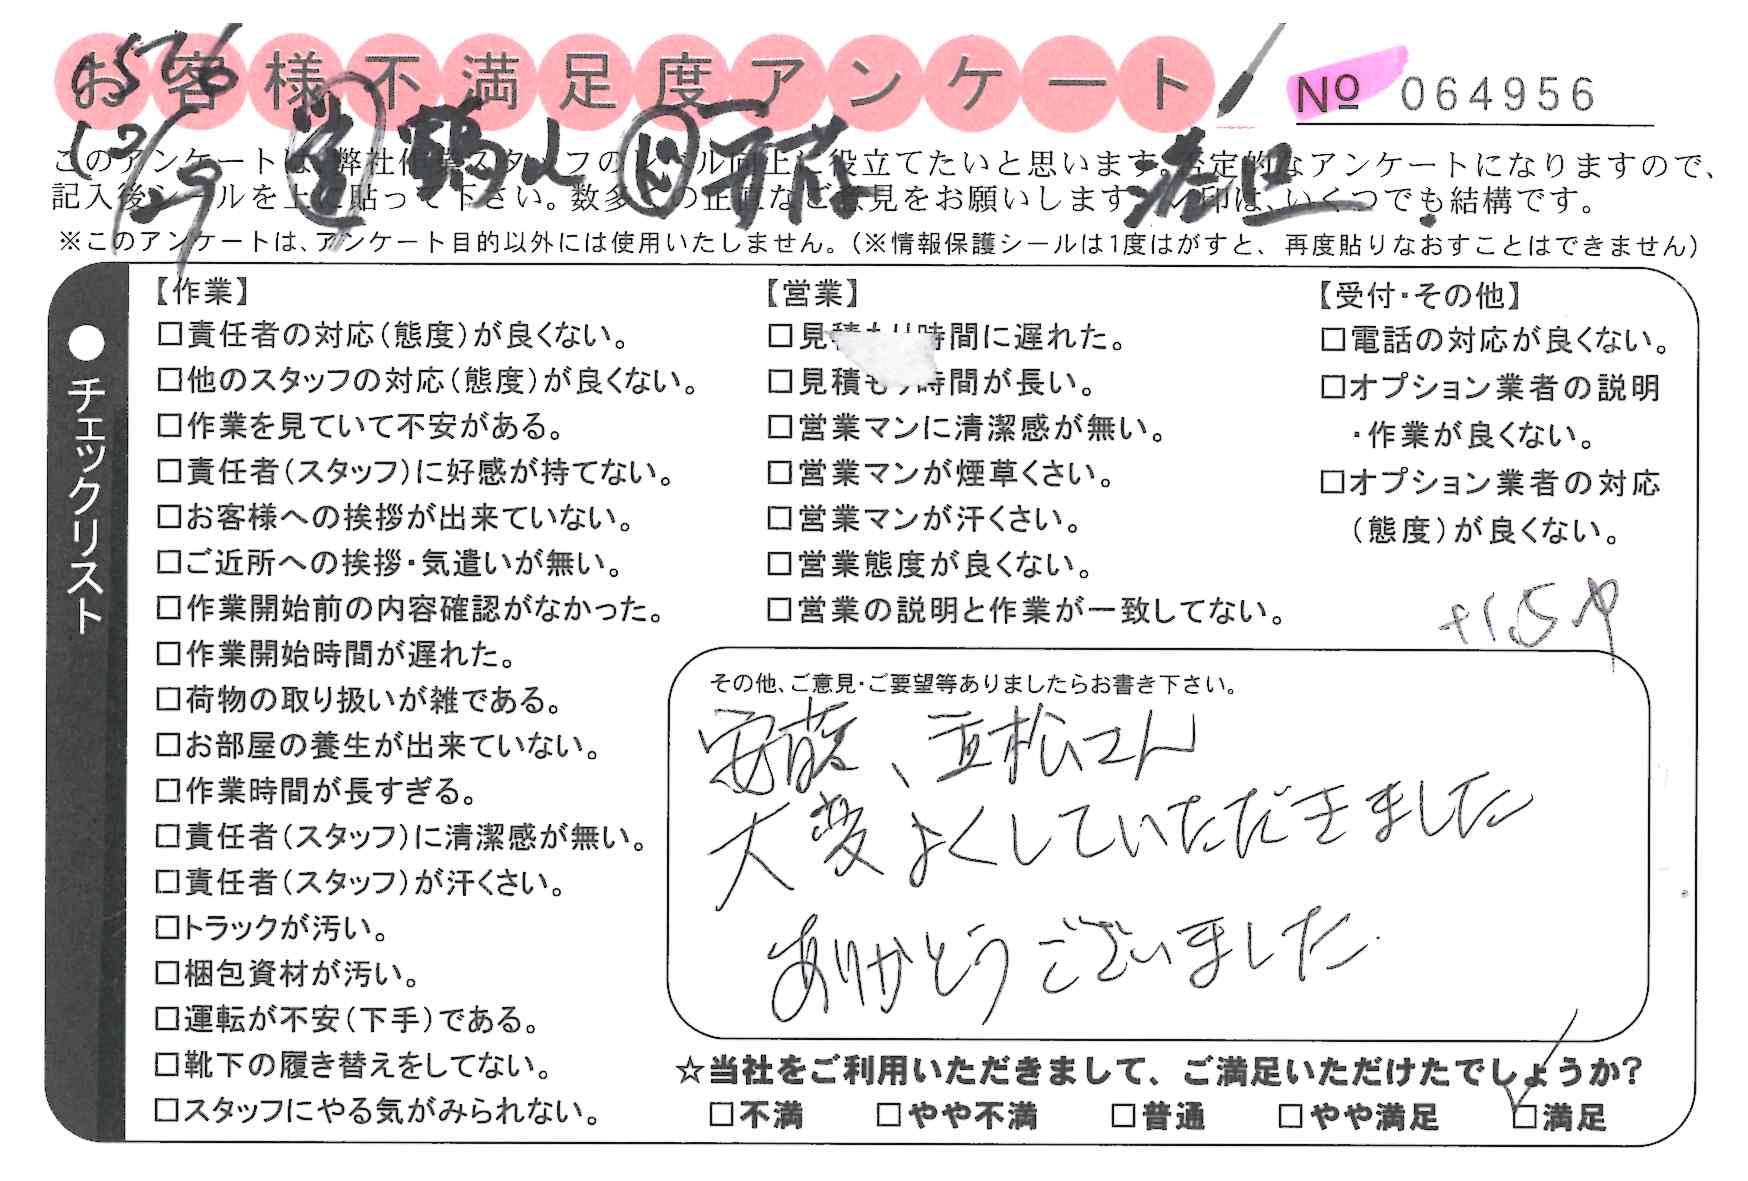 お客様不満足度アンケート
№ 064956
12/9
このアンケートは、弊社作業スタッフのレベル向上に役立てたいと思います。否定的なアンケートになりますので、
記入後シールを上に貼って下さい。数多くの正直なご意見をお願いします。レ印は、いくつでも結構です。
※このアンケートは、アンケート目的以外には使用いたしません。（※情報保護シールは1度はがすと、再度貼りなおすことはできません）
●チェックリスト
【作業】
□責任者の対応（態度）が良くない。
□他のスタッフの対応（態度）が良くない。
□作業を見ていて不安がある。
□責任者（スタッフ）に好感が持てない。
□お客様への挨拶が出来ていない。
□ご近所への挨拶・気遣いが無い。
□作業開始前の内容確認がなかった。
□作業開始時間が遅れた。
□荷物の取り扱いが雑である。
□お部屋の養生が出来ていない。
□作業時間が長すぎる。
□責任者（スタッフ）に清潔感が無い。
□責任者（スタッフ）が汗くさい。
□トラックが汚い。
□梱包資材が汚い。
□運転が不安（下手）である。
□靴下の履き替えをしてない。
□スタッフにやる気がみられない。
【営業】
□見積もり時間に遅れた。
□見積もり時間が長い。
□営業マンに清潔感が無い。
□営業マンが煙草くさい。
□営業マンが汗くさい。
□営業態度が良くない。
□営業の説明と作業が一致してない。
【受付・その他】
□電話の対応が良くない。
□オプション業者の説明
・作業が良くない。
□オプション業者の対応
（態度）が良くない。
その他、ご意見・ご要望等ありましたらお書き下さい。
安藤、並松さん
大変よくしていただきました
ありがとうございました
☆当社をご利用いただきまして、ご満足いただけたでしょうか？
□不満 □やや不満 □普通 □やや満足 □満足